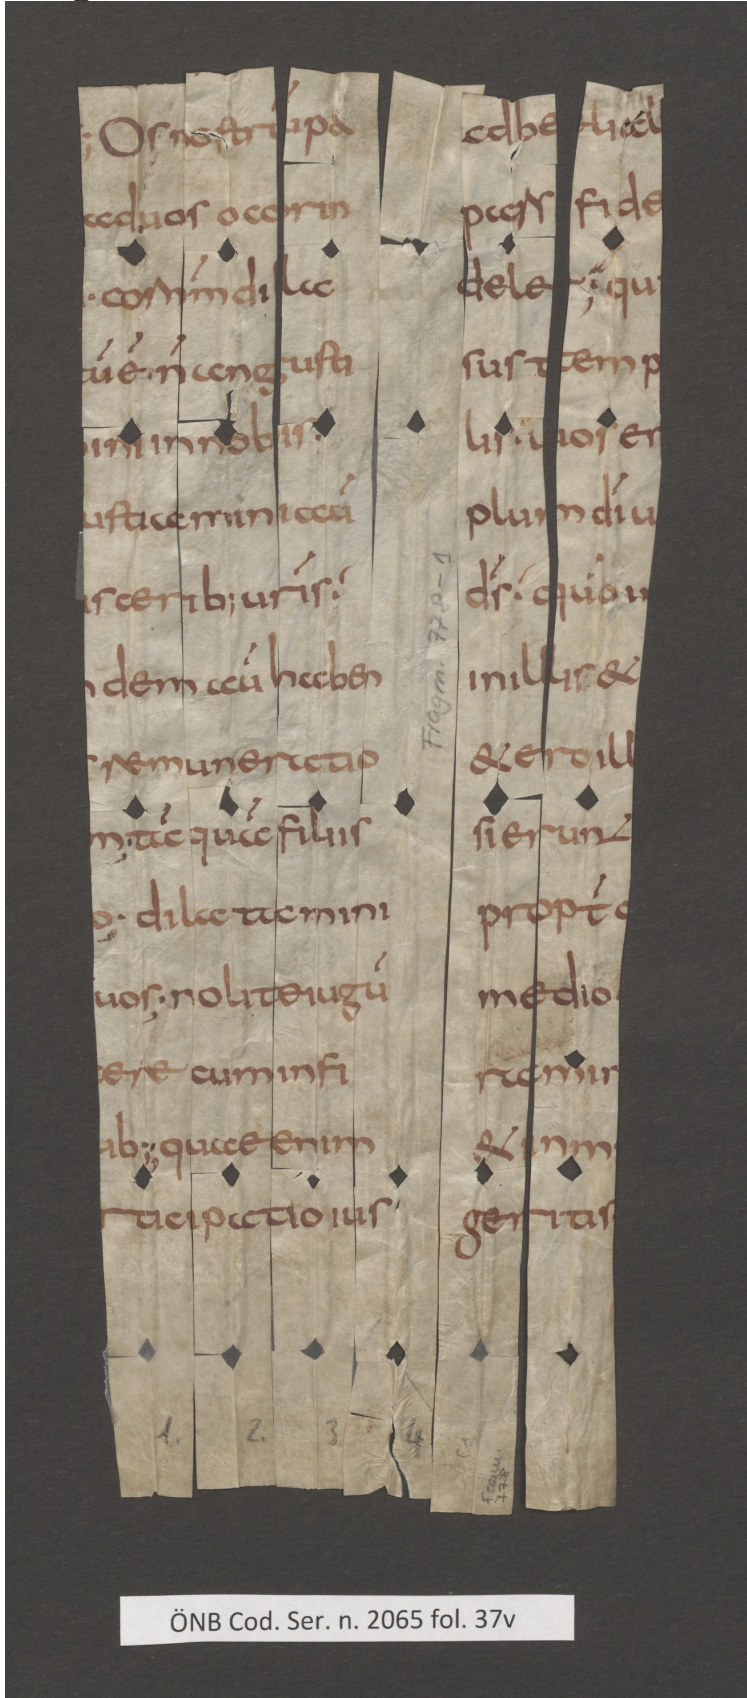 ; Os nostrū pa
ad uos o corin
· cor nr̄m dila
tū ē · n̄ angusti
mini in nobis ·
ustiamini aū
iscerib; ur̄is ·
ndem aū haben
remuneratio
m; tā quā filiis
o · dilatamini
uos · nolite iugū
cere cum infi
ab; quae enim
rticipatio ius
ad belial
pars fide
dele ; qu
sus temp
lis · uos en
plum dī ui
ds̄ · quon
in illis &
& ero ill
si erunt
propt̄
medio
ramin
& inm
geritis
Fragm. 778-1
1.
2.
3
4
Fragm. 778
ÖNB Cod. Ser. n. 2065 fol. 37v